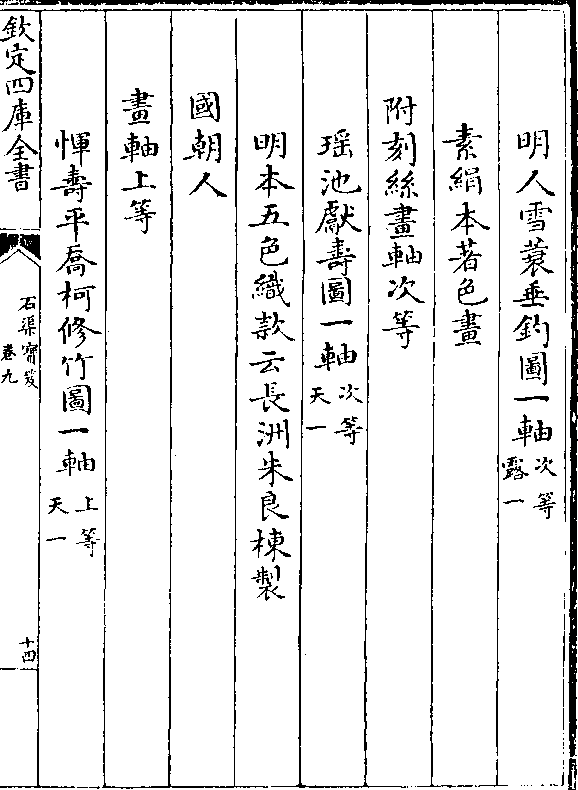 明人雪蓑垂釣圖一軸次等露一
素絹本著色畫
附刻絲畫軸次等
瑶池獻壽圖一軸次等天一
明本五色織款云長洲朱良棟製
國朝人
畫軸上等
惲壽平喬柯修竹圖一軸上等天一
欽定四庫全書
石渠寶笈
卷九
十四